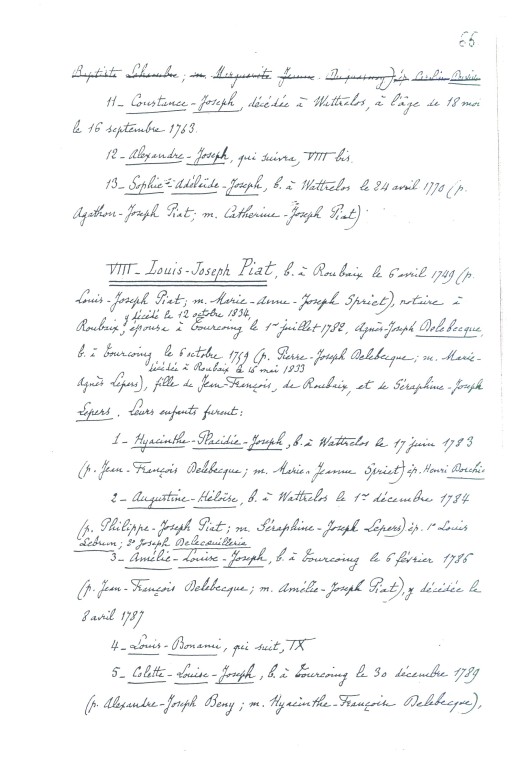 66
Baptiste Lehembre; m. Marguerite Jeanne Duquesnoy) ép.
11 - Constance-Joseph, décédée à Wattrelos, à l'âge de 18 moi
le 16 septembre 1763.
12 - Alexandre-Joseph, qui suivra, VIII bis.
13 - Sophie-Adélaïde-Joseph, b. à Wattrelos le 24 avril 1770 (p.
Agathon-Joseph Piat; m. Catherine-Joseph Piat)
VIII - Louis-Joseph Piat, b. à Roubaix le 6 avril 1749 (p.
Louis-Joseph Piat; m. Marie-Anne-Joseph Spriet), notaire à
y décédé le 12 octobre 1834,
Roubaix, épousa à Tourcoing le 1er juillet 1782, Agnès-Joseph Delebecque,
b. à Tourcoing le 6 octobre 1759 (p. Pierre-Joseph Delebecque; m. Marie-
décédée à Roubaix le 15 mai 1833
Agnès Lepers), fille de Jean-François, de Roubaix, et de Séraphine-Joseph
Lepers. Leurs enfants furent:
1 - Hyacinthe-Placidie-Joseph, b. à Wattrelos le 17 juin 1783
(p. Jean-François Delebecque; m. Marie-Jeanne Spriet) ép. Henri
2 - Augustine-Héloïse, b. à Wattrelos le 1er décembre 1784
(p. Philippe-Joseph Piat; m. Séraphine-Joseph Lepers) ép. 1° Louis
Lebrun; 2° Joseph Delecaillerie
3 - Amélie-Louise-Joseph, b. à Tourcoing le 6 février 1786
(p. Jean-François Delebecque; m. Amélie-Joseph Piat), y décédée le
8 avril 1787
4 - Louis-Bonami, qui suit, IX
5 - Colette-Louise-Joseph, b. à Tourcoing le 30 décembre 1789
(p. Alexandre-Joseph Beny; m. Hyacinthe-Françoise Delebecque),